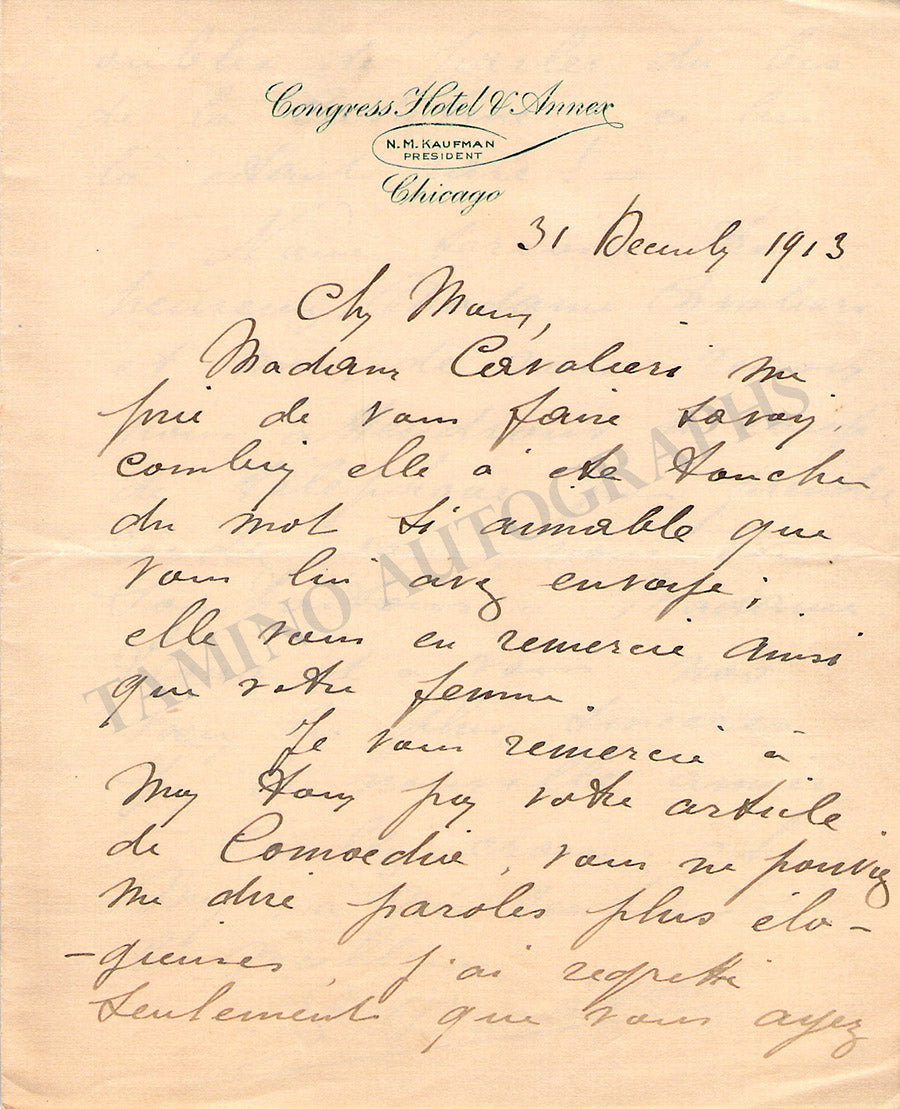 Congress Hotel & Annex
N. M. KAUFMAN
PRESIDENT
Chicago
31 December 1913
Cher
Madame Cavalieri me
prie de vous faire savoir
combien elle a été touchée
du mot si aimable que
vous lui avez envoyé ;
elle vous en remercie ainsi
que votre femme
Je vous remercie à
mon tour pour votre article
de Comoedia, vous ne pouviez
me dire paroles plus élo-
-gieuses, j'ai regretté
seulement que vous ayez
TAMINO AUTOGRAPHS